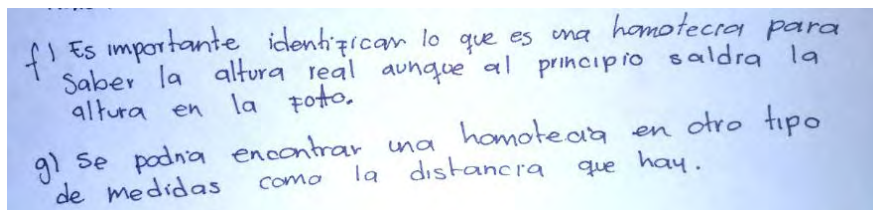 f) Es importante identificar lo que es una homotecia para
saber la altura real aunque al principio saldra la
altura en la foto.
g) Se podria encontrar una homotecia en otro tipo
de medidas como la distancia que hay.